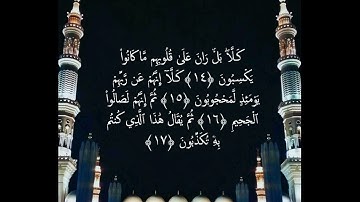 كَلَّا ۖ بَلْ رَانَ عَلَىٰ قُلُوبِهِم مَّا كَانُوا۟
يَكْسِبُونَ ﴿١٤﴾ كَلَّآ إِنَّهُمْ عَن رَّبِّهِمْ
يَوْمَئِذٍ لَّمَحْجُوبُونَ ﴿١٥﴾ ثُمَّ إِنَّهُمْ لَصَالُوا۟
الْجَحِيمِ ﴿١٦﴾ ثُمَّ يُقَالُ هَٰذَا الَّذِي كُنتُم
بِهِۦ تُكَذِّبُونَ ﴿١٧﴾